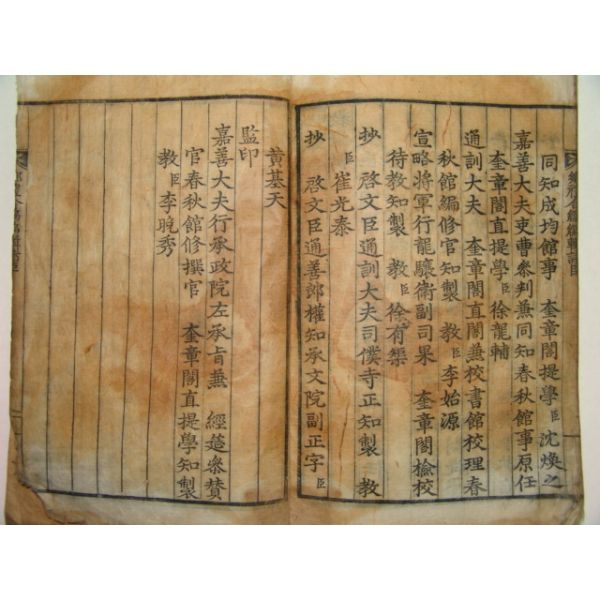 同知成均館事 奎章閣提學臣沈煥之
嘉善大夫吏曹參判兼同知春秋館事原任
奎章閣直提學臣徐龍輔
通訓大夫 奎章閣直閣兼校書館校理春
秋館編修官知製 教臣李始源
宣略將軍行龍驤衛副司果 奎章閣檢校
待教知製 教臣徐有榘
抄 啓文臣通訓大夫司僕寺正知製 教
臣崔光泰
抄 啓文臣通善郎權知承文院副正字臣
黄基天
監印
嘉善大夫行承政院左承旨兼 經筵參贊
官春秋館修撰官 奎章閣直提學知製
教臣李晚秀